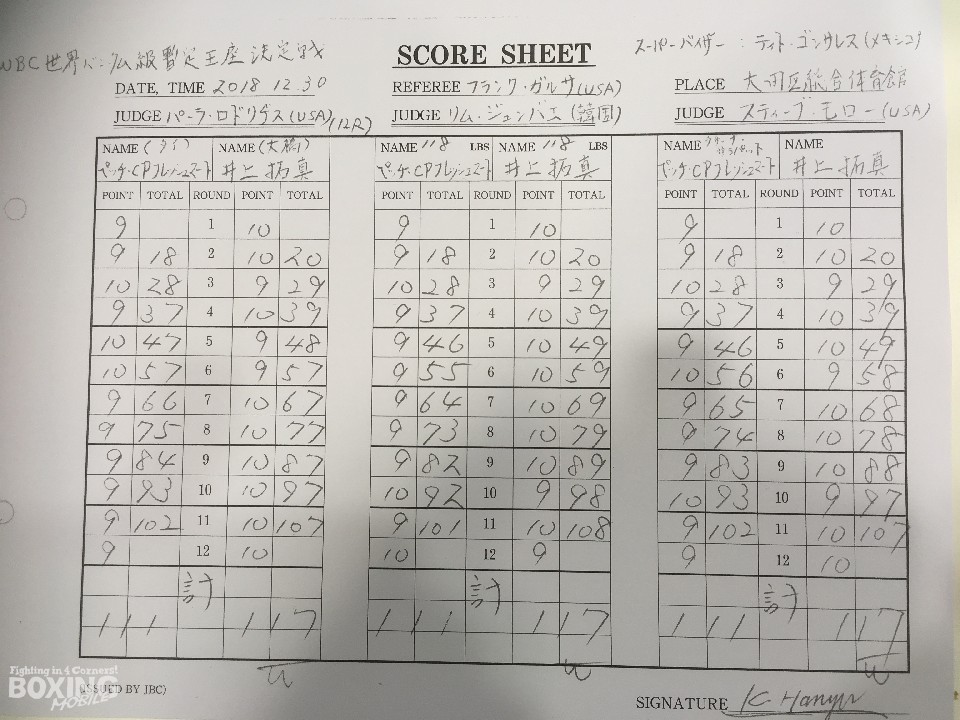 WBC世界バンタム級暫定王座決定戦 SCORE SHEET スーパーバイザー:ティト・ゴンサレス(メキシコ)
DATE, TIME 2018 12.30 REFEREE フランク・ガルサ(USA) PLACE 大田区総合体育館
JUDGE パーラ・ロドリゲス(USA) (12R) JUDGE リム・ジュンバエ(韓国) JUDGE スティーブ・モロー(USA)
NAME (タイ) NAME (大橋) NAME 118 LBS NAME 118 LBS NAME NAME
ペッチ・CPフレッシュマート 井上拓真 ペッチ・CPフレッシュマート 井上拓真 ペッチ・CPフレッシュマート 井上拓真
POINT TOTAL ROUND POINT TOTAL POINT TOTAL ROUND POINT TOTAL POINT TOTAL ROUND POINT TOTAL
9 1 10 9 1 10 9 1 10
9 18 2 10 20 9 18 2 10 20 9 18 2 10 20
10 28 3 9 29 10 28 3 9 29 10 28 3 9 29
9 37 4 10 39 9 37 4 10 39 9 37 4 10 39
10 47 5 9 48 9 46 5 10 49 9 46 5 10 49
10 57 6 9 57 9 55 6 10 59 10 56 6 9 58
9 66 7 10 67 9 64 7 10 69 9 65 7 10 68
9 75 8 10 77 9 73 8 10 79 9 74 8 10 78
9 84 9 10 87 9 82 9 10 89 9 83 9 10 88
9 93 10 10 97 10 92 10 9 98 10 93 10 9 97
9 102 11 10 107 9 101 11 10 108 9 102 11 10 107
9 12 10 10 12 9 9 12 10
計 計 計
111 117 111 117 111 117
W W W
Fighting in 4 Corners!
BOXING
MOBILE
(ISSUED BY JBC) SIGNATURE K. Hanyu